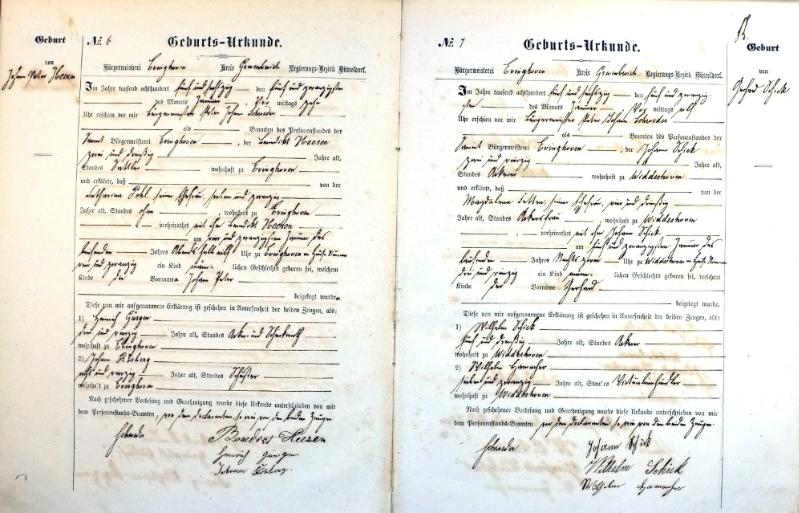 Geburt
von
Johann Peter Heesen
№ 6
Geburts-Urkunde.
Bürgermeisterei Evinghoven Kreis Grevenbroich Regierungs-Bezirk Düsseldorf.
Im Jahre tausend achthundert fünf und siebzig den fünf und zwanzigsten
des Monats Januar, Vor mittags zehn
Uhr erschien vor mir Bürgermeister Peter Johann Schroeder
als Beamten des Personenstandes der
Samt Bürgermeisterei Evinghoven, der Benedikt Heesen
zwei und dreißig Jahre alt,
Standes wohnhaft zu Evinghoven
und erklärte, daß von der
Catharina Pohl, seine Ehefrau, sieben und zwanzig
Jahre alt, Standes ohne wohnhaft zu Evinghoven
verheirathet mit ihm Benedikt Heesen
am vier und zwanzigsten Januar des
laufenden Jahres Abends halb acht Uhr zu Evinghoven im Hause Nummer
und zwanzig ein Kind männ lichen Geschlechts geboren sei, welchem
Kinde die Vornamen Johann Peter
beigelegt wurden.
Diese von mir aufgenommene Erklärung ist geschehen in Anwesenheit der beiden Zeugen, als:
1) Heinrich
und vierzig Jahre alt, Standes Acker und
wohnhaft zu Evinghoven
2) Johann
acht und vierzig Jahre alt, Standes Schuster
wohnhaft zu Evinghoven
Nach geschehener Vorlesung und Genehmigung wurde diese Urkunde unterschrieben von mir
dem Personenstands-Beamten, von dem Declaranten, so wie von den beiden Zeugen
Schroeder
Heesen
Heinrich
Johann
№ 7
Geburts-Urkunde.
Bürgermeisterei Evinghoven Kreis Grevenbroich Regierungs-Bezirk Düsseldorf.
Im Jahre tausend achthundert fünf und siebzig den fünf und zwanzig
sten des Monats Januar Vor mittags elf
Uhr erschien vor mir Bürgermeister Peter Johann Schroeder
als Beamten des Personenstandes der
Samt Bürgermeisterei Evinghoven, der Johann Schick
zwei und vierzig Jahre alt,
Standes Ackerer wohnhaft zu Widdeshoven
und erklärte, daß von der
Magdalena seine Ehefrau, vier und dreißig
Jahre alt, Standes Ackersfrau, wohnhaft zu Widdeshoven
verheirathet mit ihm Johann Schick
am fünf und zwanzigsten Januar des
laufenden Jahres Nachts zwei Uhr zu Widdeshoven im Hause Nummer
drei und vierzig ein Kind männ lichen Geschlechts geboren sei, welchem
Kinde der Vorname Gerhard
beigelegt wurde.
Diese von mir aufgenommene Erklärung ist geschehen in Anwesenheit der beiden Zeugen, als:
1) Wilhelm Schick
fünf und dreißig Jahre alt, Standes Ackerer
wohnhaft zu Widdeshoven
2) Wilhelm Hamacher
sieben und zwanzig Jahre alt, Standes Victualienhändler
wohnhaft zu Widdeshoven
Nach geschehener Vorlesung und Genehmigung wurde diese Urkunde unterschrieben von mir
dem Personenstands-Beamten, von dem Declaranten, so wie von den beiden Zeugen.
Schroeder
Johann Schick
Wilhelm Schick
Wilhelm Hamacher
Geburt
von
Gerhard Schick